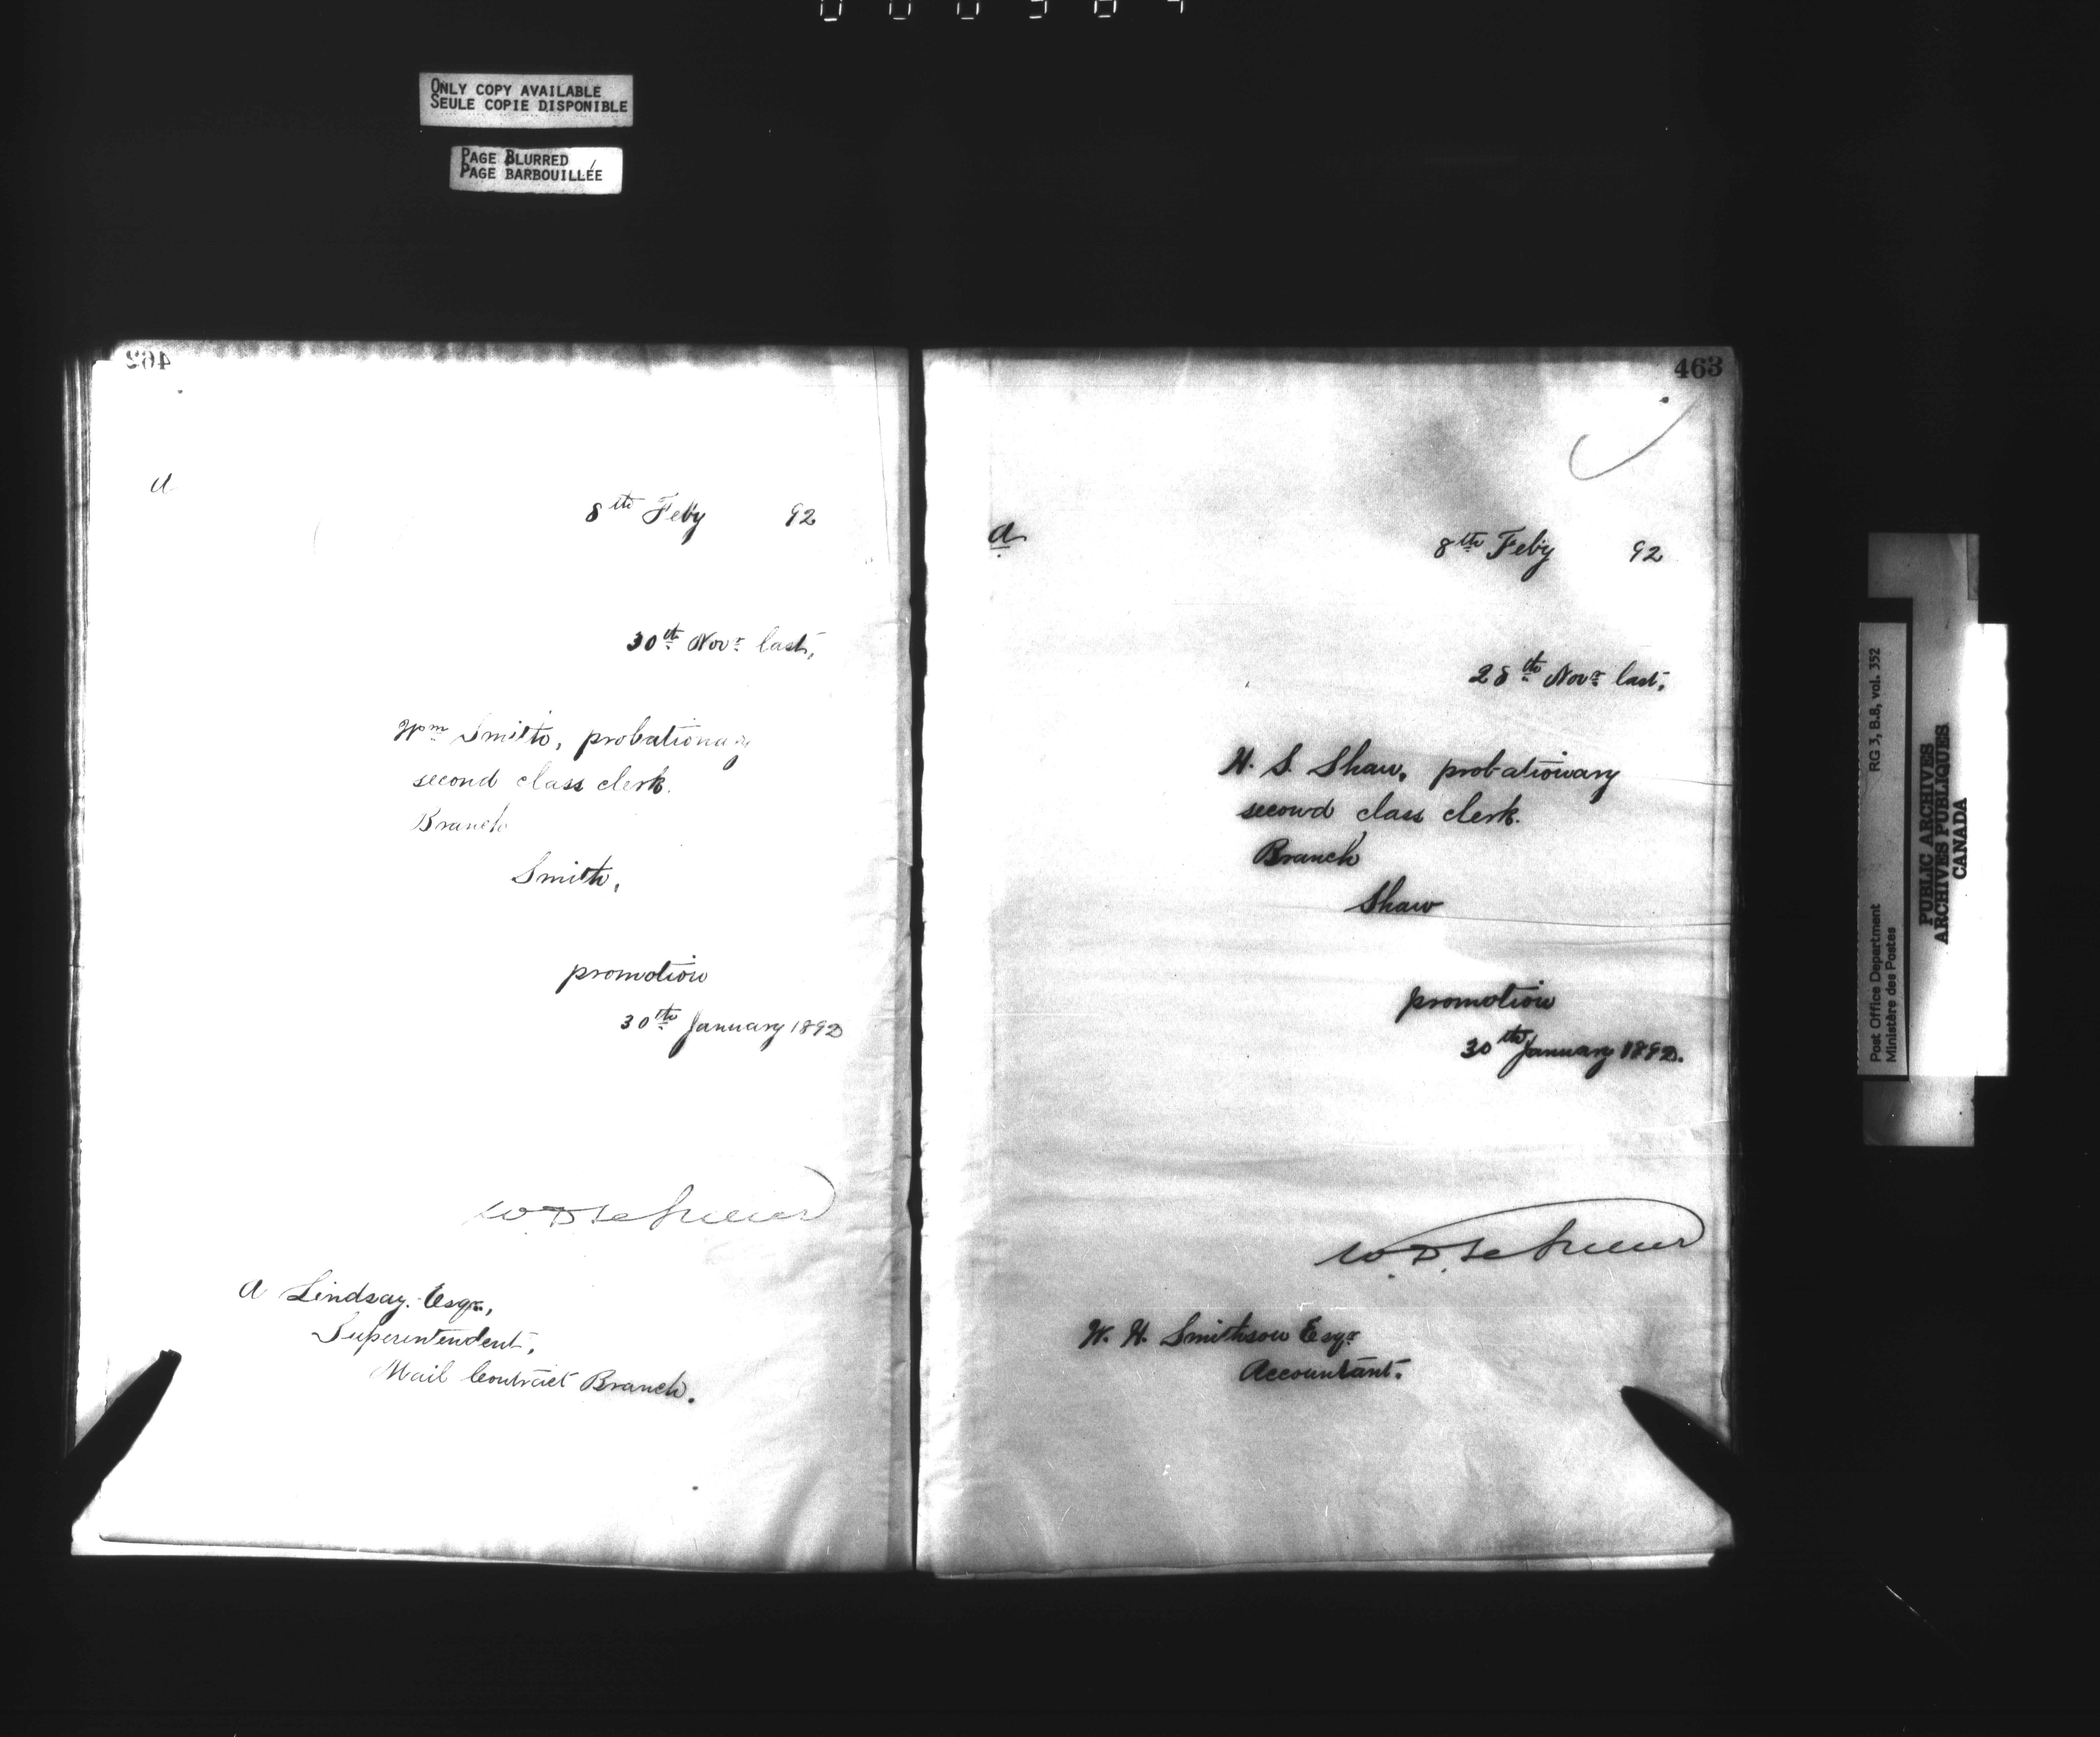 ONLY COPY AVAILABLE
SEULE COPIE DISPONIBLE
PAGE BLURRED
PAGE BARBOUILLÉE
462
A
8th Feby 92
30th Novr last,
Wm Smith, probationary
second class clerk.
Branch
Smith,
promotion
30th January 1892
W. D. LeSueur
A Lindsay. Esqr.,
Superintendent,
Mail Contract Branch.
463
A
8th Feby 92
28th Novr last,
H. S. Shaw, probationary
second class clerk.
Branch
Shaw
promotion
30th January 1892.
W. D. LeSueur
W. H. Smithson Esqr
Accountant.
Post Office Department
Ministère des Postes
RG 3, B.8, vol. 352
PUBLIC ARCHIVES
ARCHIVES PUBLIQUES
CANADA